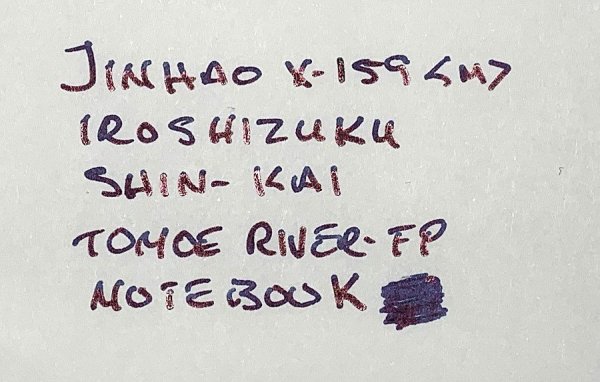 JINHAO X-159 <M>
IROSHIZUKU
SHIN-KAI
TOMOE RIVER-FP
NOTEBOOK